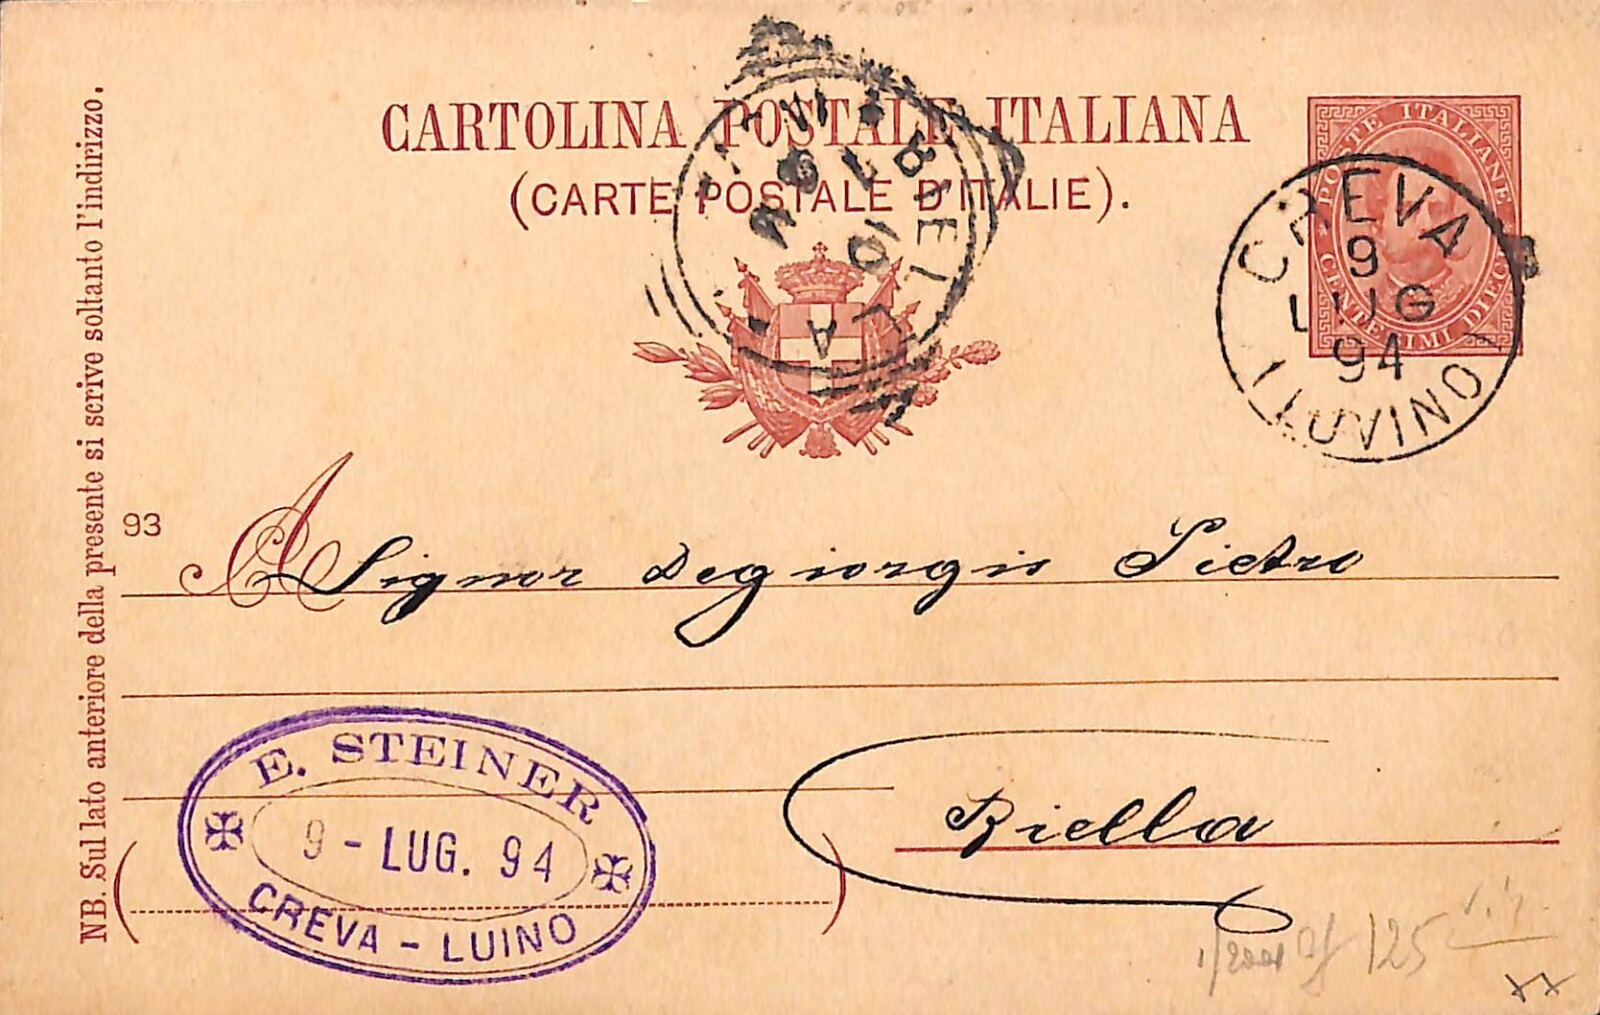 CARTOLINA POSTALE ITALIANA
(CARTE POSTALE D'ITALIE).
POSTE ITALIANE
CENTESIMI DIECI
CREVA
9
LUG
94
LUVINO
BIELLA
10
NB. Sul lato anteriore della presente si scrive soltanto l'indirizzo.
93
A Signor Degiorgis Pietro
Biella
E. STEINER
9 - LUG. 94
CREVA - LUINO
125